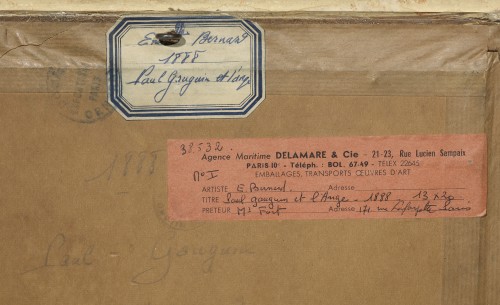 Emile Bernard
1888
Paul Gauguin et l'ange
38532
Agence Maritime DELAMARE & Cie - 21-23, Rue Lucien Sampaix
PARIS-10e - Téléph. : BOL. 67-49 - TELEX 22645
EMBALLAGES, TRANSPORTS ŒUVRES D'ART
No I
ARTISTE E. Bernard Adresse
TITRE Paul Gauguin et l'Ange - 1888 13 x 20
PRETEUR Mr Fort Adresse 171 rue Lafayette Paris
1888
Paul Gauguin